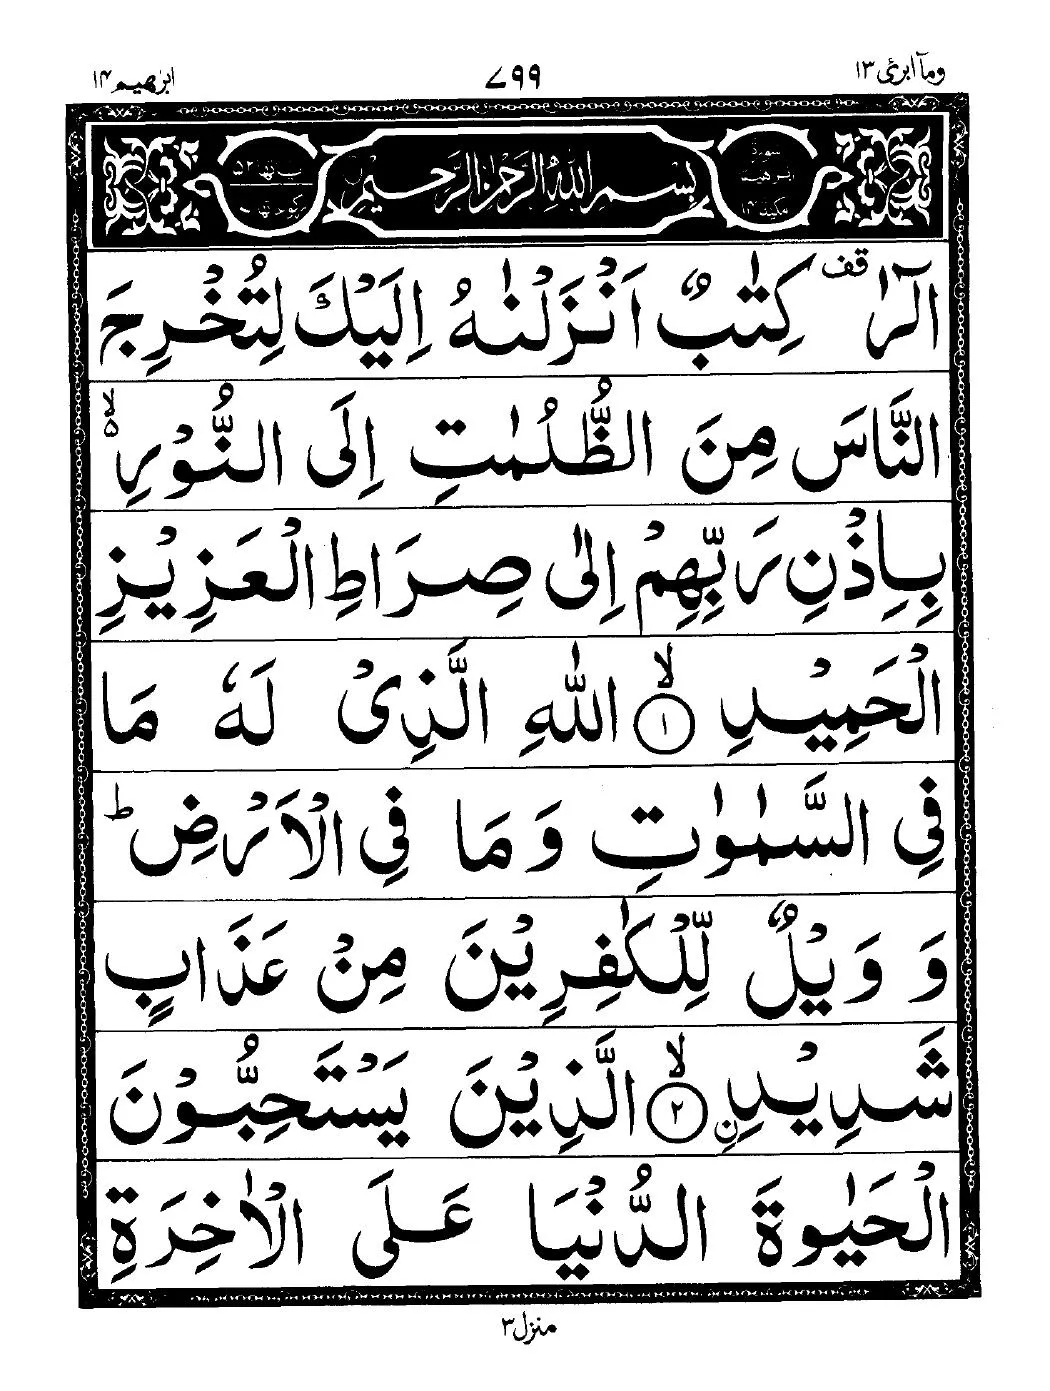 ومآ ابرئ ۱۳
۷۹۹
ابرٰهيم ۱۴
سورة ابرٰهيم مكية ۱۴
بِسْمِ اللّٰهِ الرَّحْمٰنِ الرَّحِيْمِ
اٰياتها ۵۲
ركوعاتها
الٓرٰ ۟قف كِتٰبٌ اَنْزَلْنٰهُ اِلَيْكَ لِتُخْرِجَ
النَّاسَ مِنَ الظُّلُمٰتِ اِلَى النُّوْرِ ۙ۬ۙ
بِاِذْنِ رَبِّهِمْ اِلٰى صِرَاطِ الْعَزِيْزِ
الْحَمِيْدِ ۙ﴿۱﴾ اللّٰهِ الَّذِىْ لَهٗ مَا
فِى السَّمٰوٰتِ وَمَا فِى الْاَرْضِ ؕ
وَ وَيْلٌ لِّلْكٰفِرِيْنَ مِنْ عَذَابٍ
شَدِيْدِ ۙن ﴿۲﴾ الَّذِيْنَ يَسْتَحِبُّوْنَ
الْحَيٰوةَ الدُّنْيَا عَلَى الْاٰخِرَةِ
منزل ۳